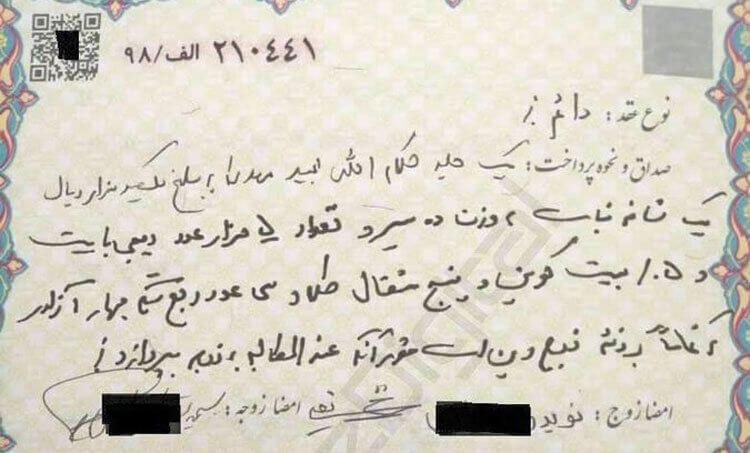 ۲۱۰۴۴۱ الف/۹۸
نوع عقد: دائم
صداق و نحوه پرداخت: یک جلد کلام الله مجید مهریه به مبلغ یکصد هزار ریال
یک شاخه نبات به وزن ده سیر و تعداد هزار عدد دیجی بایت
و ۱۰۵ بیت کوین و پنج مثقال طلا و سی عدد ربع سکه بهار آزادی
که تماماً بر ذمه زوج دین است که عندالمطالبه به زوجه بپردازد
امضا زوج: نوید امضا زوجه:
Digital